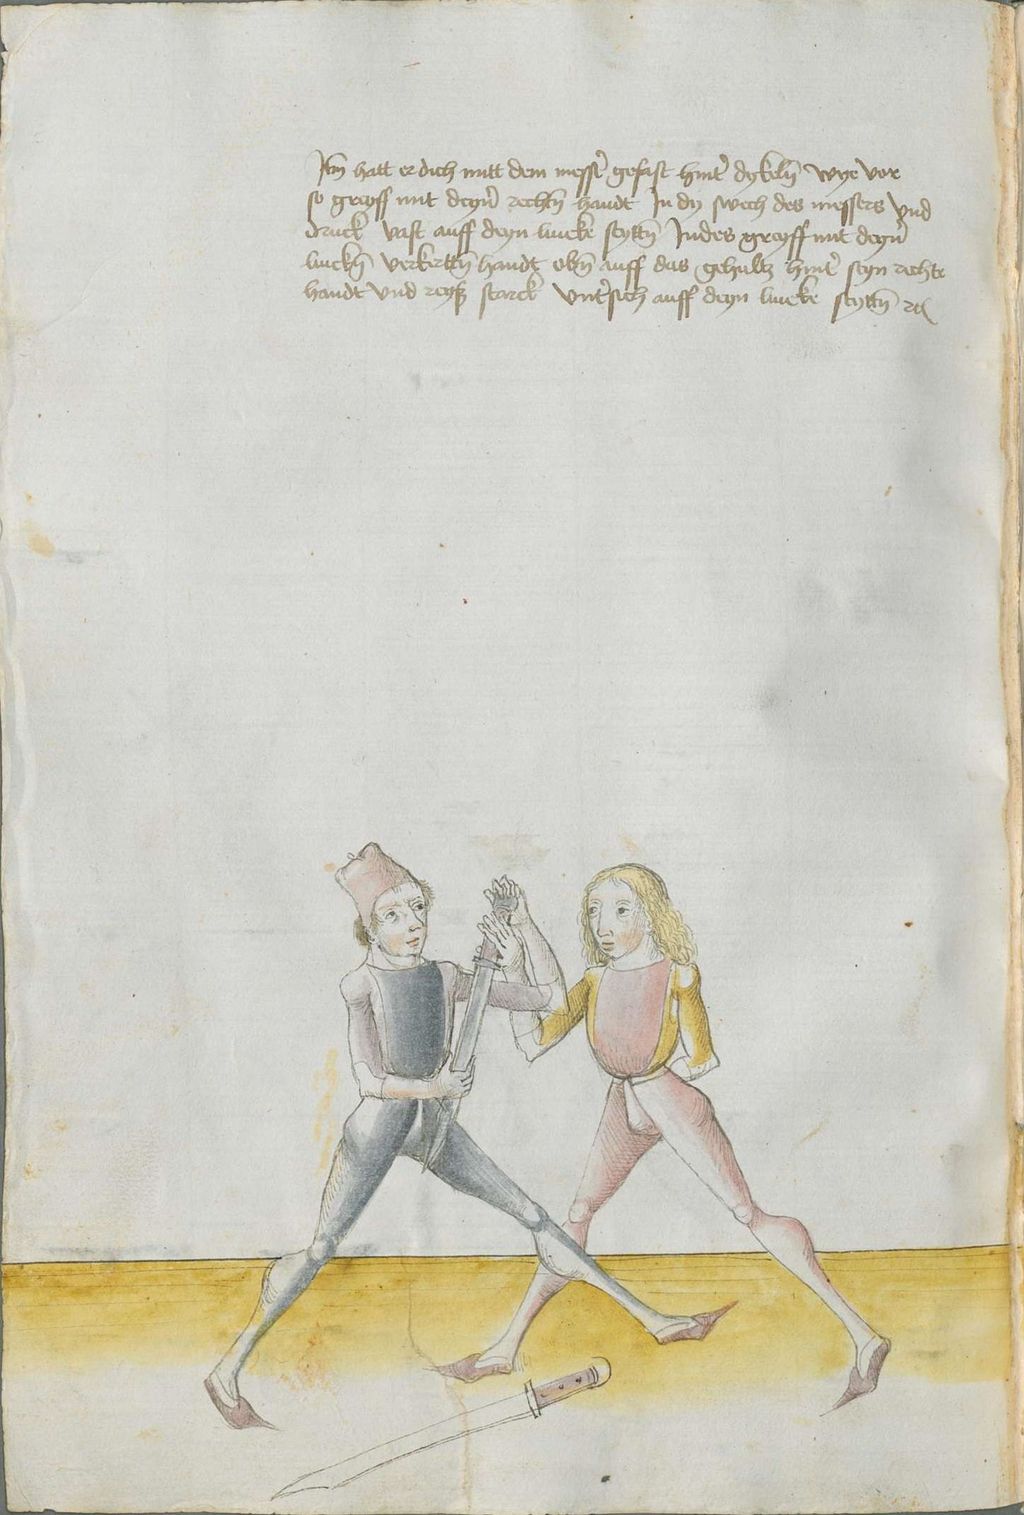 Itm̄ hatt er dich mitt dem messer̉ gefast hint̉ dy keln̄ wye vor
so greyff mit deyn̉ rechtn̄ handt In dy swech des messers vnd
druck vast auff deyn lincke seyttn̄ Indes greyff mit deyn̉
linckn̄ verkerttn̄ handt obn̄ auff das gehultz hint̉ seyn rechte
handt vnd reyß starck vnt̉sich auff deyn lincke seyttn̄